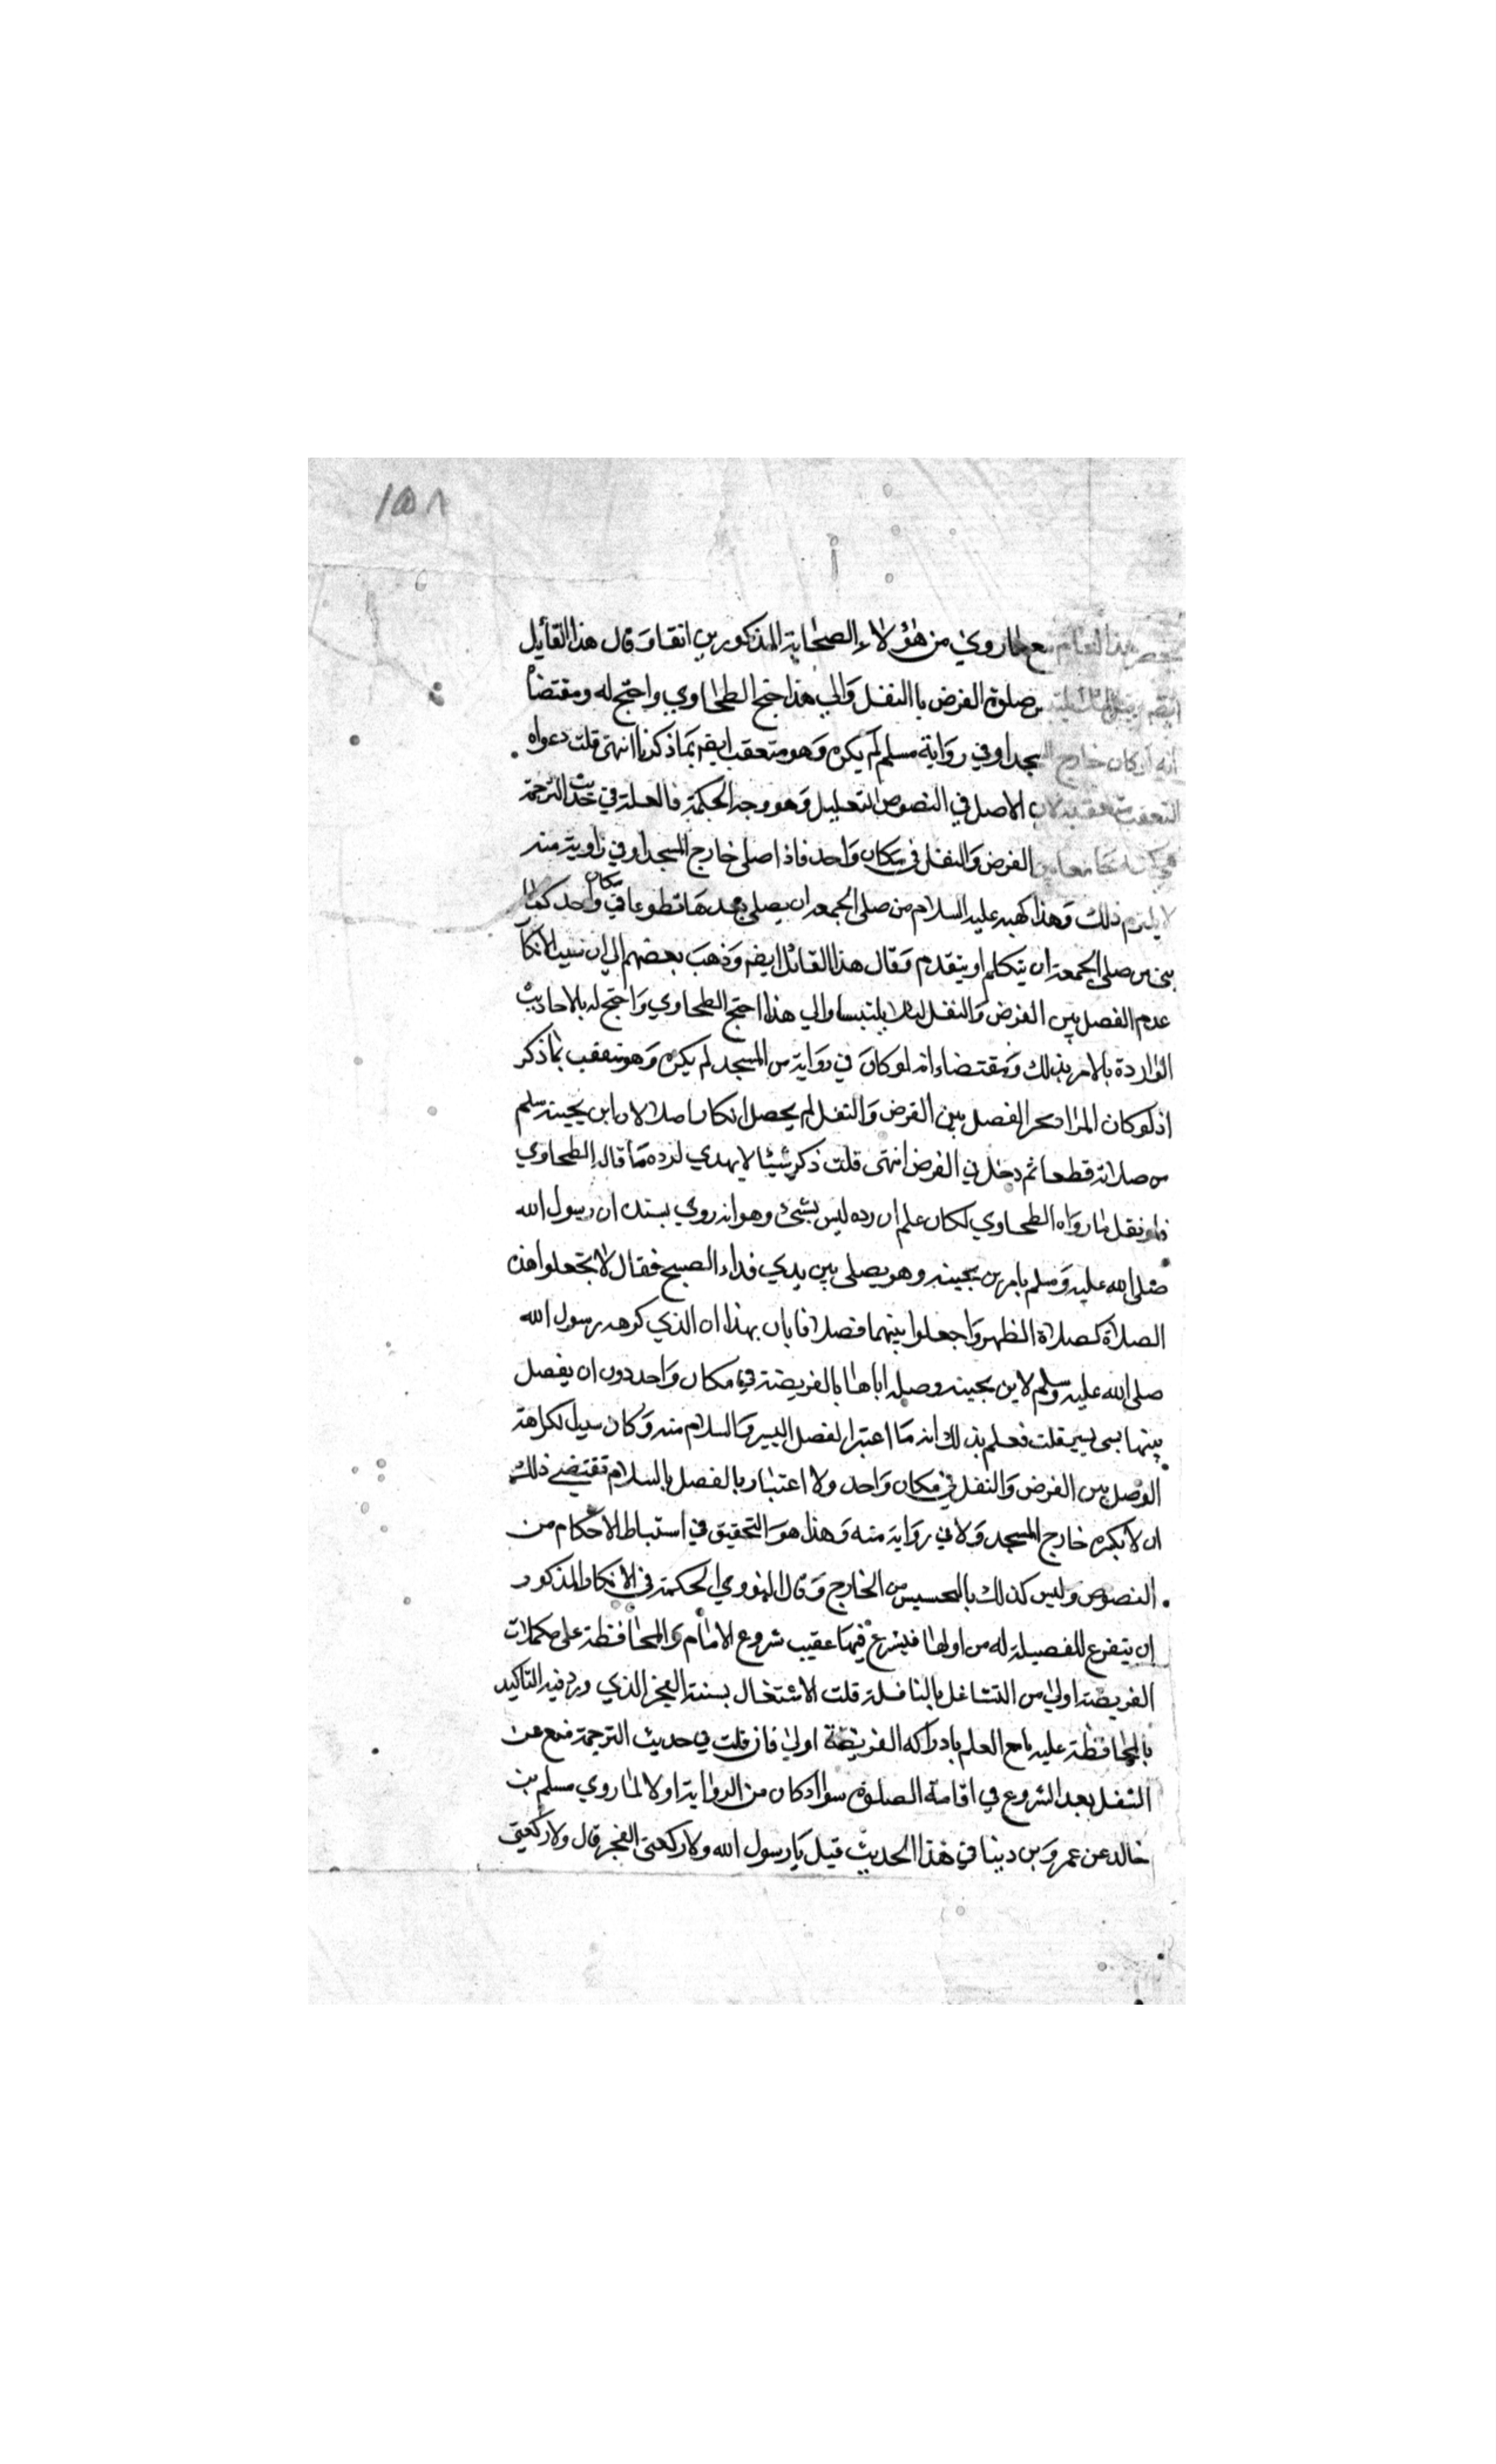 ١٥٨
مع ما روي من هؤلاء الصحابة المذكورين انفا وقال هذا القائل
صلوة الفرض بالنفل والي هذا جنح الطحاوي واحتج له ومقتضاه
انه لو كان خارج المسجد او في رواية مسلم لم يكره وهو متعقب ايضا بما ذكرنا انتهى قلت دعواه
التعقب متعقبة لان الاصل في النصوص التعليل وهو وجه الحكمة فالعلة في حديث الترجمة
الفرض والنفل في مكان واحد فاذا صلى خارج المسجد او في زاوية منه
لا يلزم ذلك وهذا كنهيه عليه السلام من صلى الجمعة ان يصلي بعدها تطوعا في مكان واحد كما
نهى من صلى الجمعة ان يتكلم او يتقدم وقال هذا القائل ايضا وذهب بعضهم الي ان سبب الانكار
عدم الفصل بين الفرض والنفل لئلا يلتبسا والي هذا احتج الطحاوي واحتج له بالاحاديث
الواردة بالامر بذلك ومقتضاه انه لو كان في رواية من المسجد لم يكره وهو متعقب بما ذكر
اذ لو كان المراد مجرد الفصل بين الفرض والنفل لم يحصل انكار اصلا لان ابن بحينة سلم
من صلاته قطعا ثم دخل في الفرض انتهى قلت ذكر شيئا لا يهدي لرده ما قاله الطحاوي
فلو نقل ما رواه الطحاوي لكان علم ان رده ليس بشئ وهو انه روي بسنده ان رسول الله
صلى الله عليه وسلم بامر بن بحينه وهو يصلي بين يدي فداء الصبح فقال لا تجعلوا هذه
الصلاة كصلاة الظهر واجعلوا بينهما فصلا فابان بهذا ان الذي كرهه رسول الله
صلى الله عليه وسلم لابن بحينه وصله اياها بالفريضة في مكان واحد دون ان يفصل
بينهما بسى يسير قلت فعلم بذلك انه ما اعتبر الفصل اليسير والسلام منه وكان سبيل لكراهة
الوصل بين الفرض والنفل في مكان واحد ولا اعتبار بالفصل بالسلام تقتضي ذلك
ان لا يكره خارج المسجد ولا في رواية منه وهذا هو التحقيق في استنباط الاحكام من
النصوص وليس كذلك بالمحسيس من الخارج وقال النووي الحكمة في الانكار المذكور
ان يتفرغ للفصيلة له من اولها فيشرع فيها عقيب شروع الامام والمحافظة على مكملات
الفريضة اولى من التشاغل بالنافلة قلت الاشتغال بسنة الفجر الذي ورد فيه التاكيد
بالمحافظة عليه مع العلم بادراكه الفريضة اولى فان قلت في حديث الترجمة منع عن
التنفل بعد الشروع في اقامة الصلوة سوا كان من الرواية اولا لما روي مسلم بن
خالد عن عمرو بن دينا في هذا الحديث قيل يا رسول الله ولا ركعتي الفجر قال ولا ركعتي